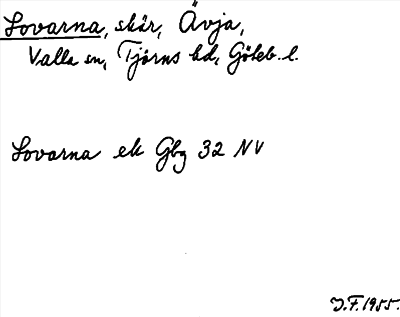 Lovarna, skär, Ävja,
Valla sn, Tjörns hd, Göteb. l.
Lovarna ek Gbg 32 NV
J.F. 1955.